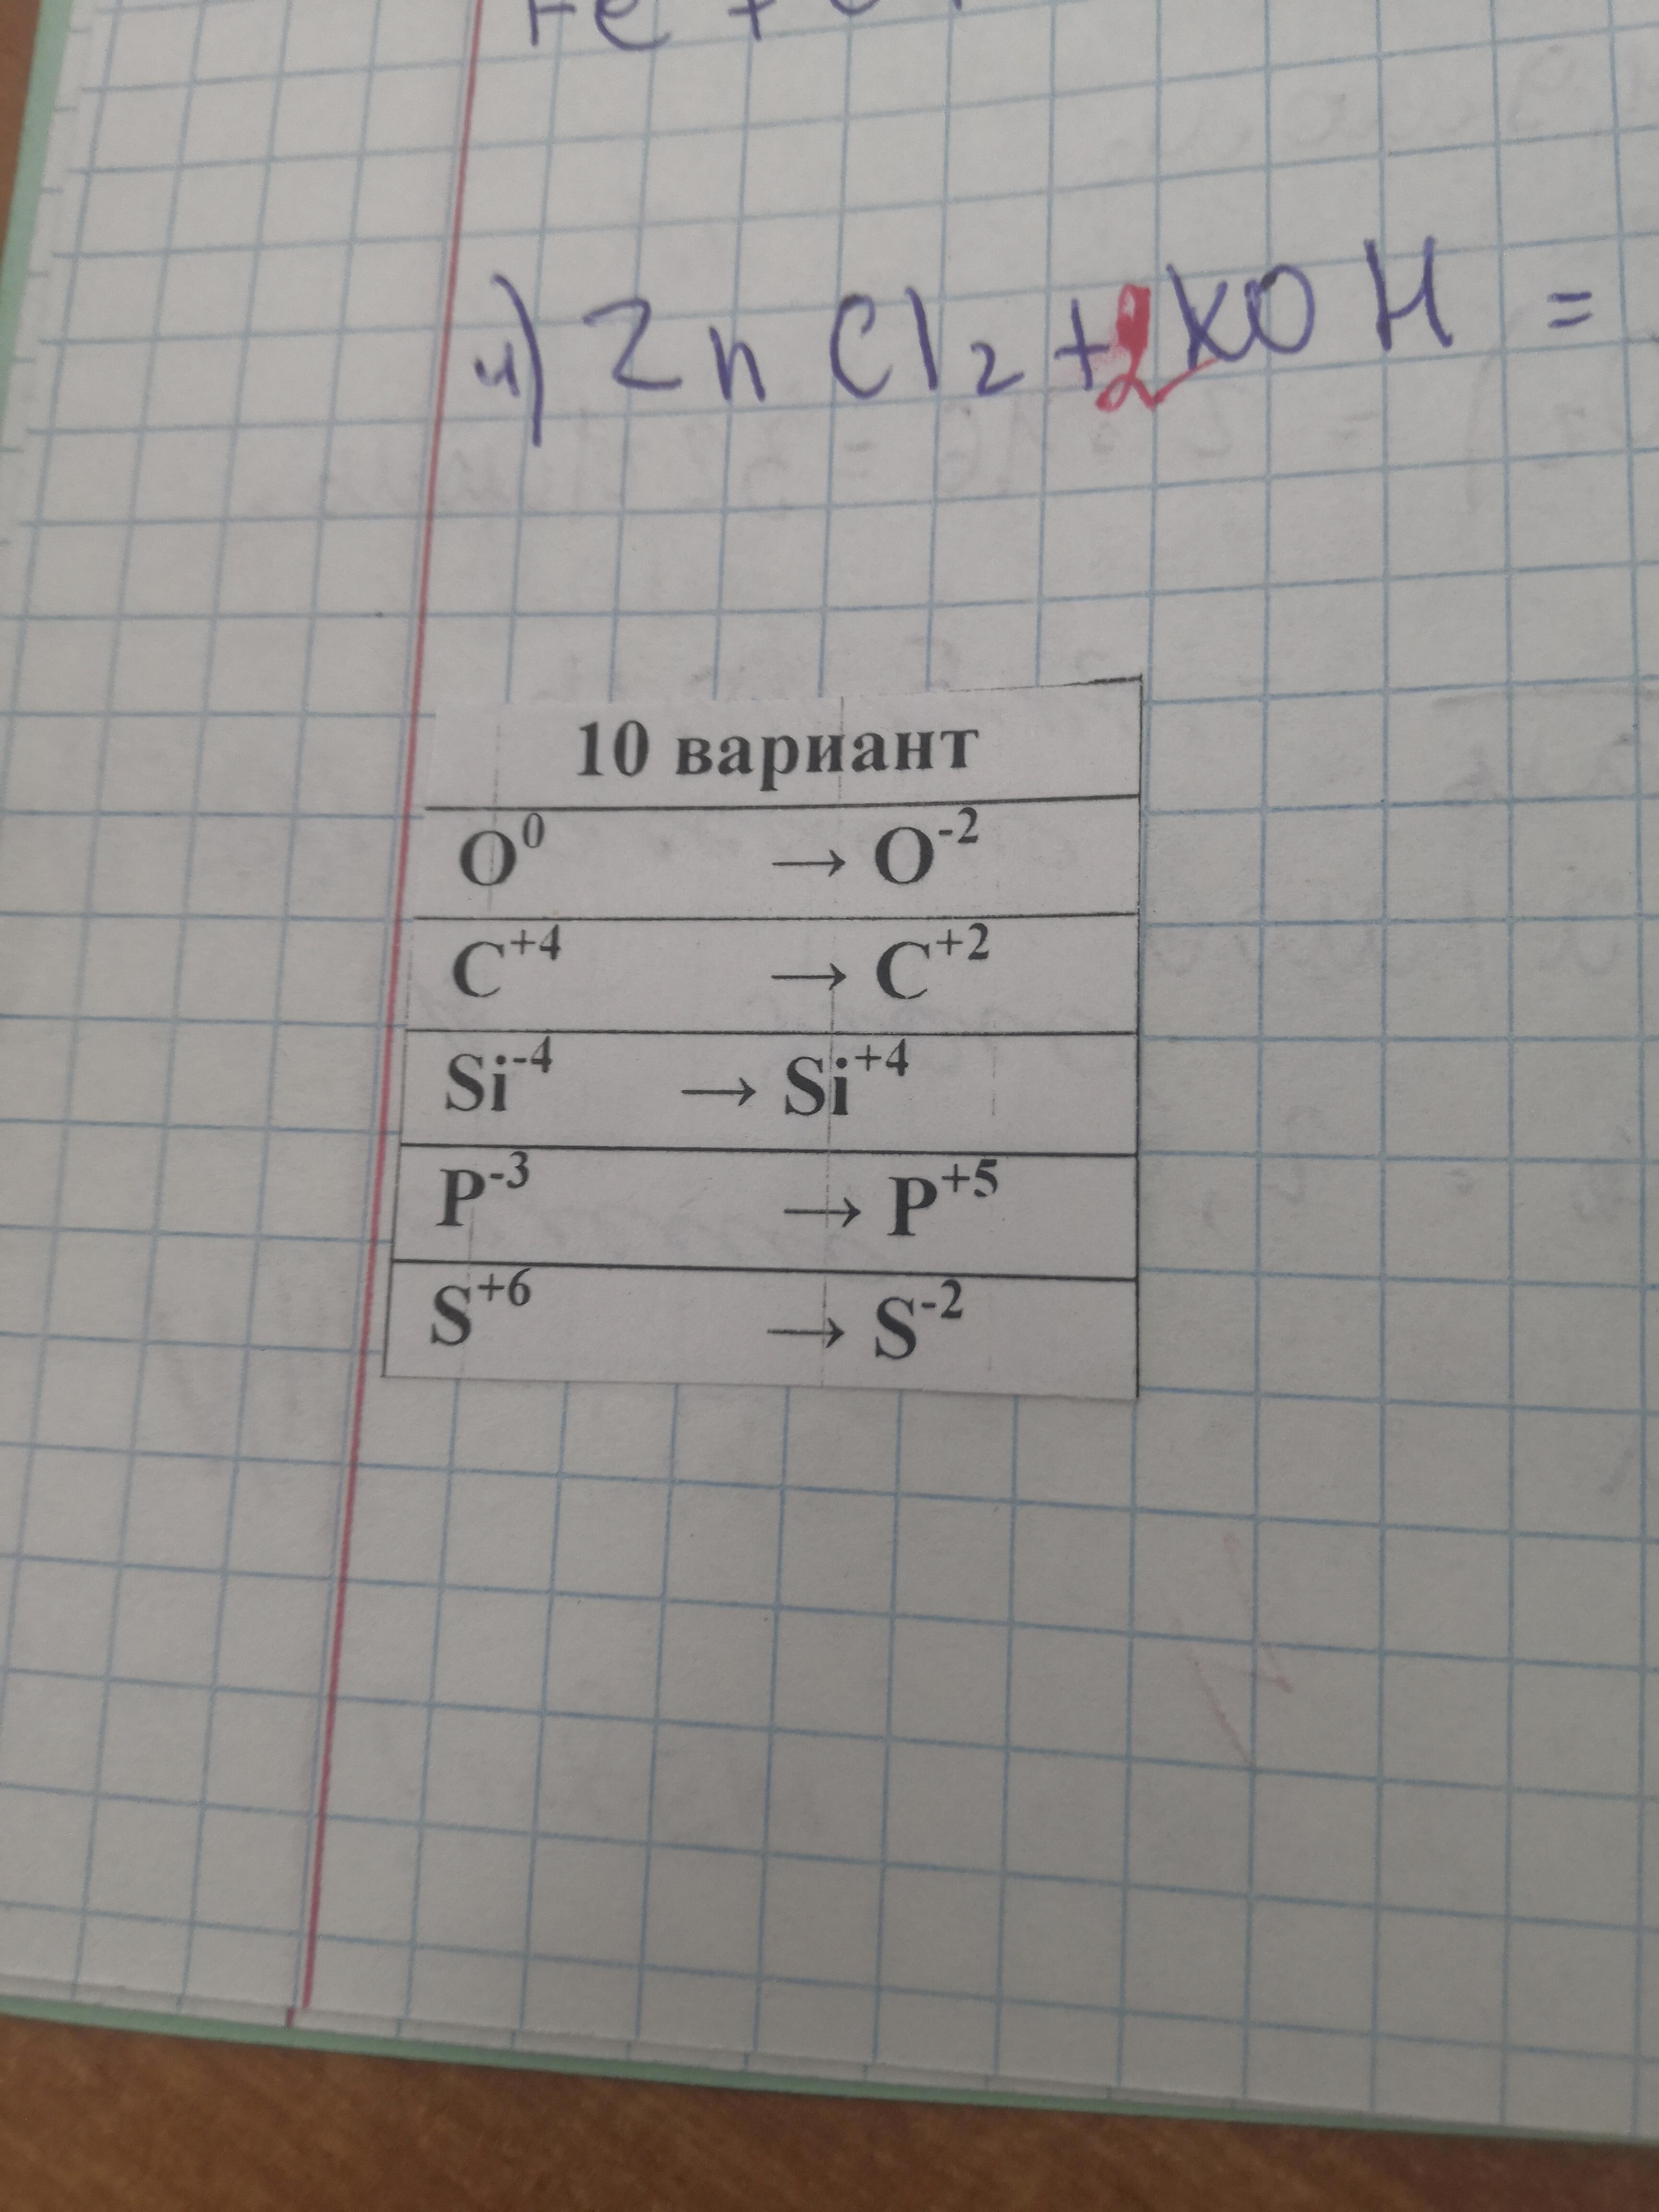 Fe +
4) ZnCl₂ + 2KOH =
10 вариант
O⁰ → O⁻²
C⁺⁴ → C⁺²
Si⁻⁴ → Si⁺⁴
P⁻³ → P⁺⁵
S⁺⁶ → S⁻²